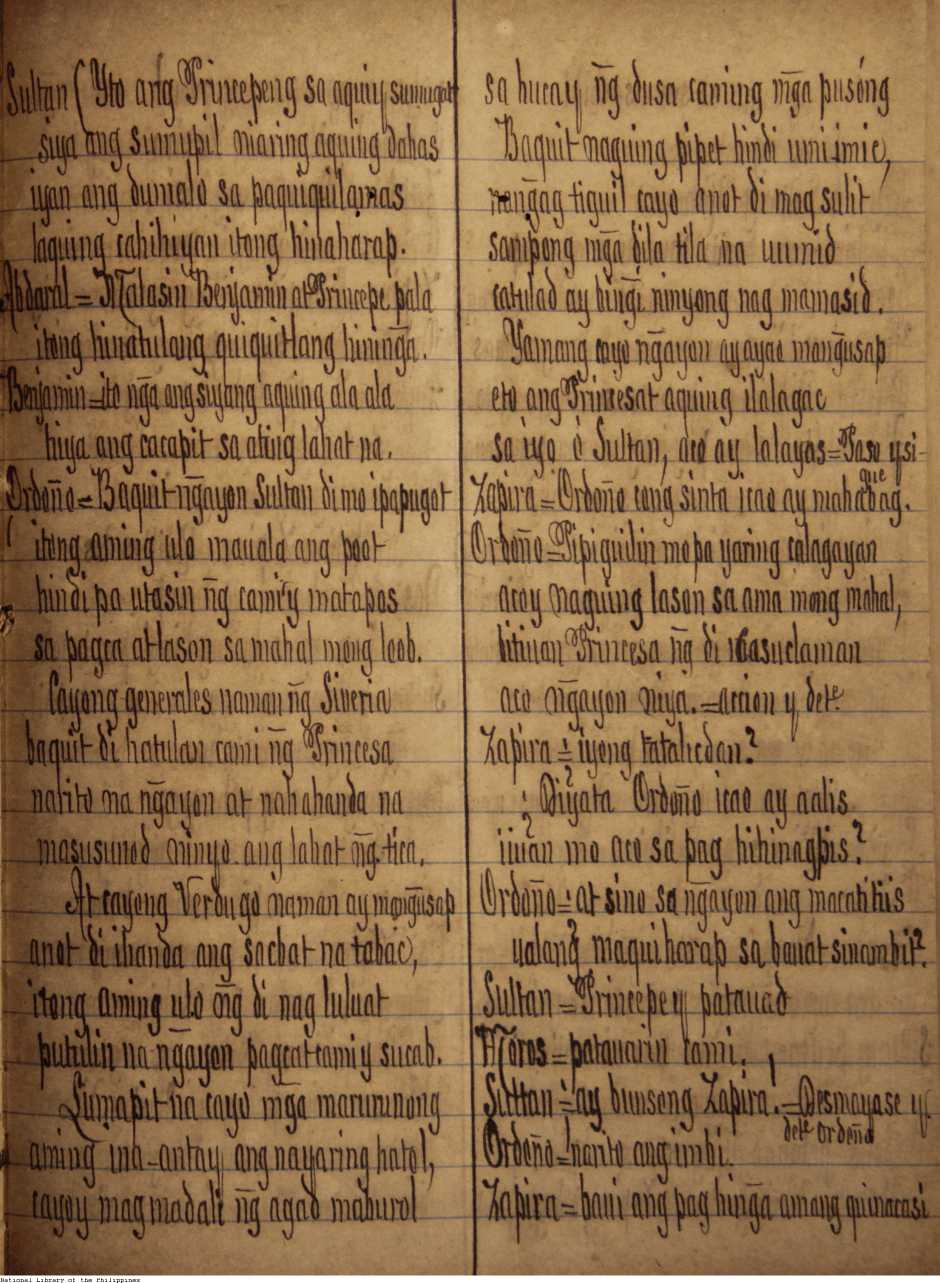 Sultan ( Yto ang Princepeng sa aquiy sumugat
siya ang sumupil niaring aquing dahas
iyan ang dumalo sa paquiquilamas
laquing cahihiyan itong hinaharap.
Abdaral = Malasin Benjamin at Princepe pala
itong hinatulang quiquitlang hininga.
Benjamin = ito nga ang siyang aquing ala ala
tiya ang cacapit sa ating lahat na.
Ordoño = Baquit ngayon Sultan di mo ipapugot
( itong aming ulo mauala ang poot
hindi pa utasin ng cami'y matapos
sa pagca at lason sa mahal mong loob.
Cayong generales naman ng Siveria
baquit di hatulan cami ng Princesa
narito na ngayon at nahahanda na
masusunod ninyo ang lahat ng tica.
At cayong Verdugo naman ay mangusap
anot di ihanda ang sacbat na tabac,
itong aming ulo ng di nag luluat
putulin na ngayon pagcat cami y sucab.
Lumapit na cayo mga marurunong
aming ina-antay ang nayaring hatol,
cayoy mag madali ng agad mahurol
sa hucay ng dusa caming mga pusong
Baquit naguing pipet hindi umiimic,
nangag tiguil cayo anot di mag sulit
sampong mga dila tila na uumid
catulad ay bingi ninyong nag mamasid.
Yamang cayo ngayon ay ayao mangusap
eto ang Princesat aquing ilalagac
sa iyo ó Sultan, aco ay lalayas = Paso y si-
Zapira = Ordoño cong sinta icao ay mahabag.
Ordoño = Pipiguilin mo pa yaring calagayan
acoy naguing lason sa ama mong mahal,
bitiuan Princesa ng di casuclaman
aco ngayon niya. = accion y dete
Zapira = ¿iyong tatalicdan?
¿Diyata Ordoño icao ay aalis
iiuan mo aco sa pag hihinagpis?
Ordoño = at sino sa ngayon ang macatitiis
ualang maquiharap sa banat sinambit?
Sultan = Princepe y patauad
Moros = patauarin cami.
Sultan = ay bunsong Zapira. = Desmayase y
dete Ordoño
Ordoño = narito ang imbi.
Zapira = baui ang pag hinga amang quinacasi
National Library of the Philippines